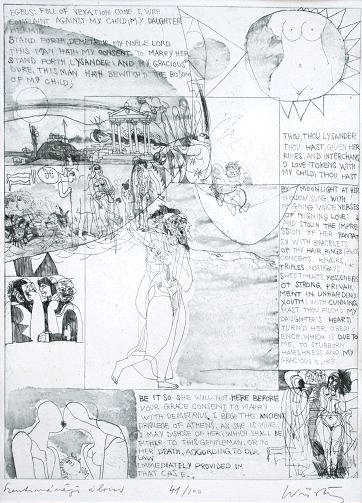 EGEUS: FULL OF VEXATION COME I, WITH
COMPLAINT AGAINST MY CHILD, MY DAUGHTER
HERMIA.
STAND FORTH, DEMETRIUS. MY NOBLE LORD,
THIS MAN HATH MY CONSENT TO MARRY HER.
STAND FORTH LYSANDER. AND MY GRACIOUS
DUKE, THIS MAN HATH BEWITCH'D THE BOSOM
OF MY CHILD;
THOU, THOU LYSANDER
THOU HAST GIVEN HER
RIMES, AND INTERCHANG
D LOVE-TOKENS WITH
MY CHILD; THOU HAST
BY MOONLIGHT AT HER
WINDOW SUNG, WITH
FEIGNING VOICE VERSES
OF FEIGNING LOVE;
AND STOLN THE IMPRE
SSION OF HER FANTA
SY WITH BRACELETS
OF THY HAIR, RINGS, GAWDS
CONCEITS, KNACKS,
TRIFLES, NOSEGAYS,
SWEETMEATS, MESSENGERS
OF STRONG PREVAIL
MENT IN UNHARDEN'D
YOUTH: WITH CUNNING
HAST THOU FILCH'D MY
DAUGHTER'S HEART;
TURN'D HER OBEDI
ENCE, WHICH IS DUE TO
ME, TO STUBBORN
HARSHNESS AND MY
GRACIOUS DUKE
BE IT SO SHE WILL NOT HERE BEFORE
YOUR GRACE CONSENT TO MARRY
WITH DEMETRIUS, I BEG THE ANCIENT
PRIVILEGE OF ATHENS, AS SHE IS MINE,
I MAY DISPOSE OF HER; WHICH SHALL BE
EITHER TO THIS GENTLEMAN, OR TO
HER DEATH, ACCORDING TO OUR
LAW
IMMEDIATELY PROVIDED IN
THAT CASE.
Szentivánéji álom
41/100